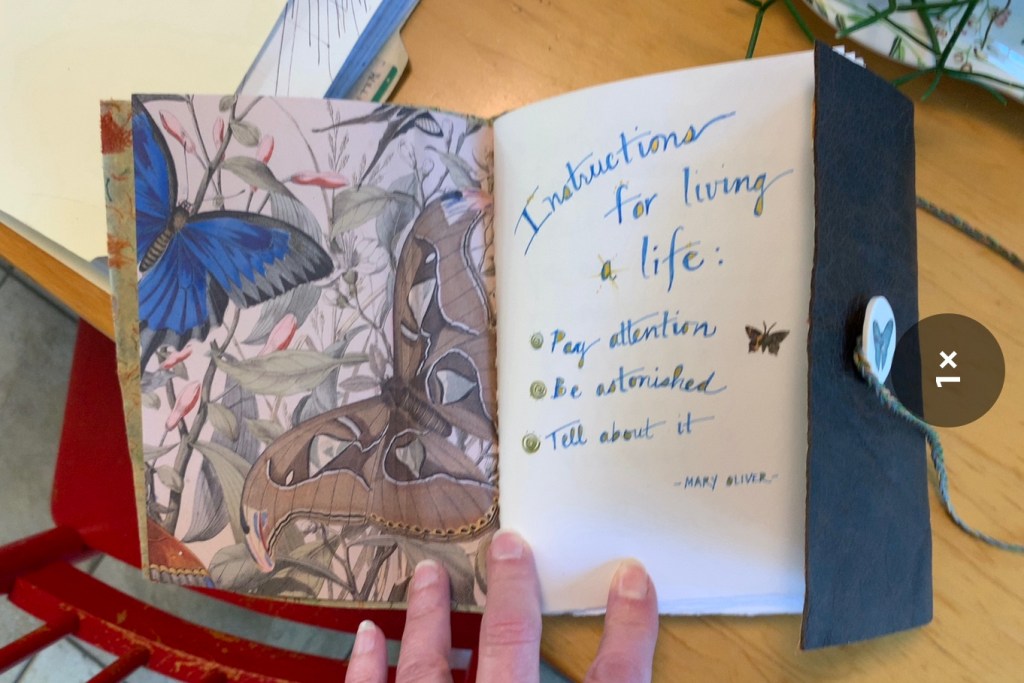 Instructions
for living
a life:
Pay attention
Be astonished
Tell about it
-MARY OLIVER-
1×